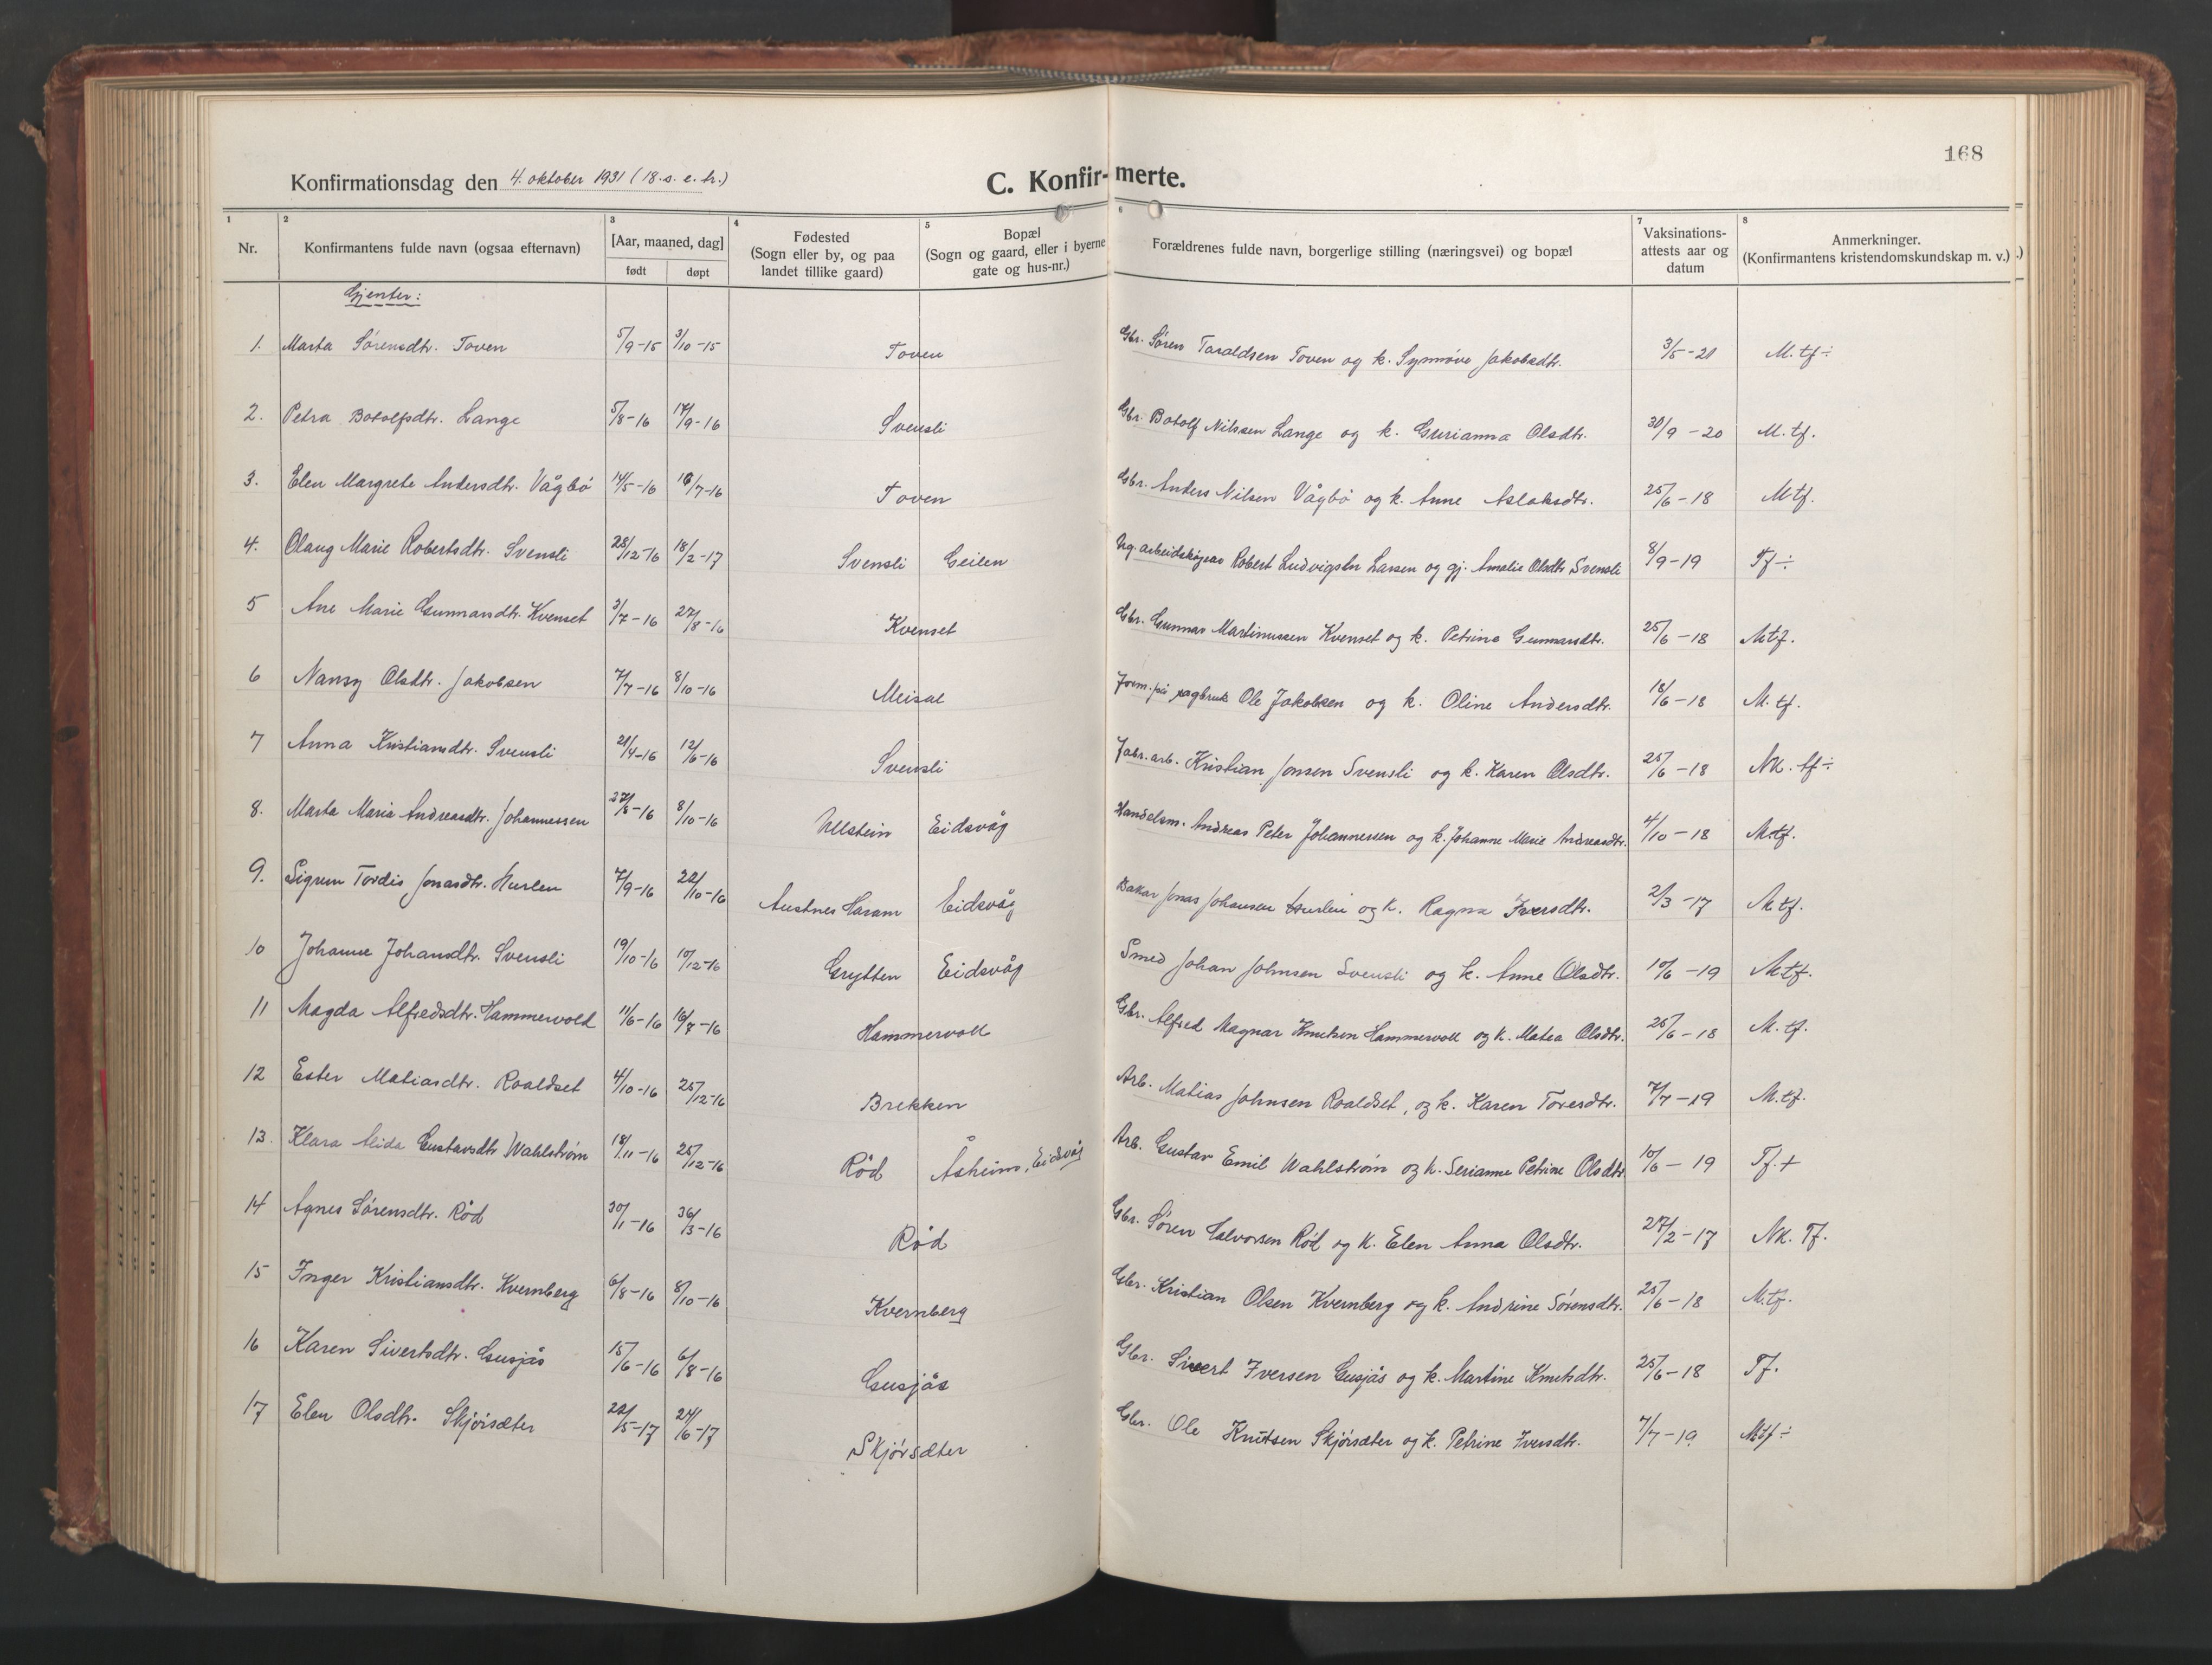 168
Konfirmationsdag den 4. oktober 1931 (18. s. e. tr.) C. Konfirmerte.
1 2 3 4 5 6 7 8
Nr. Konfirmantens fulde navn (ogsaa efternavn) [Aar, maaned, dag] født døpt Fødested (Sogn eller by, og paa landet tillike gaard) Bopæl (Sogn og gaard, eller i byerne gate og hus-nr.) Forældrenes fulde navn, borgerlige stilling (næringsvei) og bopæl Vaksinations-attests aar og datum Anmerkninger. (Konfirmantens kristendomskundskap m. v.)
Gjenter:
1. Marta Sörensdtr. Toven 5/9-15 3/10-15 Toven Gbr. Sören Taraldsen Toven og k. Synnöve Jakobsdtr. 3/5-20 M. tf ÷
2. Petra Botolfsdtr. Lange 5/8-16 17/9-16 Svensli Gbr. Botolf Nilssen Lange og k. Gurianna Olsdtr. 30/9-20 M. tf.
3. Elen Margrete Andersdtr. Vågbö 14/5-16 16/7-16 Toven Gbr. Anders Nilsen Vågbö og k. Anne Aslaksdtr. 25/6-18 Mtf.
4. Olaug Marie Robertsdtr. Svensli 28/12-16 18/2-17 Svensli Geilen Ug. Robert Ludvigsen Larsen og gj. Amalie Olsdtr Svensli 8/9-19 Tf ÷
5 Ane Marie Gunnarsdtr. Kvenset 3/7-16 27/8-16 Kvenset Gbr. Gunnar Martinussen Kvenset og k. Petrine Gunnarsdtr. 25/6-18 Mtf.
6 Nansy Olsdtr. Jakobsen 7/7-16 8/10-16 Meisal Form. på sagbruk Ole Jakobsen og k. Oline Andersdtr. 18/6-18 M. tf.
7 Anna Kristiansdtr. Svensli 21/4-16 12/6-16 Svensli Fabr. arb. Kristian Jonsen Svensli og k. Karen Olsdtr. 25/6-18 NK. tf ÷
8. Marta Maria Andreasdtr. Johannessen 27/8-16 8/10-16 Ullstein Eidsvåg Handelsm. Andreas Peter Johannessen og k. Johanne Marie Andreasdtr. 4/10-18 Mtf.
9. Sigrun Tordis Jonasdtr. Hurlen 7/9-16 22/10-16 Austnes Haram Eidsvåg Bakar Jonas Johansen Hurlen og k. Ragna Iversdtr. 2/3-17 Mtf.
10 Johanne Johansdtr. Svensli 19/10-16 10/12-16 Grytten Eidsvåg Smed Johan Johnsen Svensli og k. Anne Olsdtr. 10/6-19 Mtf.
11 Magda Alfredsdtr. Hammervold 11/6-16 16/7-16 Hammervoll Gbr. Alfred Magnar Knutsen Hammervoll og k. Matea Olsdtr. 25/6-18 M. tf.
12 Ester Matiasdtr. Roaldset 4/10-16 25/12-16 Brekken Arb. Matias Johnsen Roaldset, og k. Karen Toresdtr. 7/7-19 M. tf.
13. Klara Alida Gustavsdtr Wahlström 18/11-16 25/12-16 Röd Åsheim, Eidsvåg Arb. Gustav Emil Wahlström og k. Serianne Petrine Olsdtr. 10/6-19 Tf. +
14 Agnes Sörensdtr. Röd 30/1-16 /3-16 Röd Gbr. Sören Halvorsen Röd og k. Elen Anna Olsdtr. 27/2-17 Nk. Tf.
15 Inger Kristiansdtr. Kvernberg 6/8-16 8/10-16 Kvernberg Gbr. Kristian Olsen Kvernberg og k. Andrine Sörensdtr. 25/6-18 M. tf.
16 Karen Sivertsdtr. Gusjås 15/6-16 6/8-16 Gusjås Gbr. Sivert Iversen Gusjås og k. Martine Knutsdtr. 25/6-18 Tf.
17 Elen Olsdtr. Skjörsæter 22/5-17 24/6-17 Skjörsæter Gbr. Ole Knutsen Skjörsæter og k. Petrine Iversdtr. 7/7-19 Mtf ÷